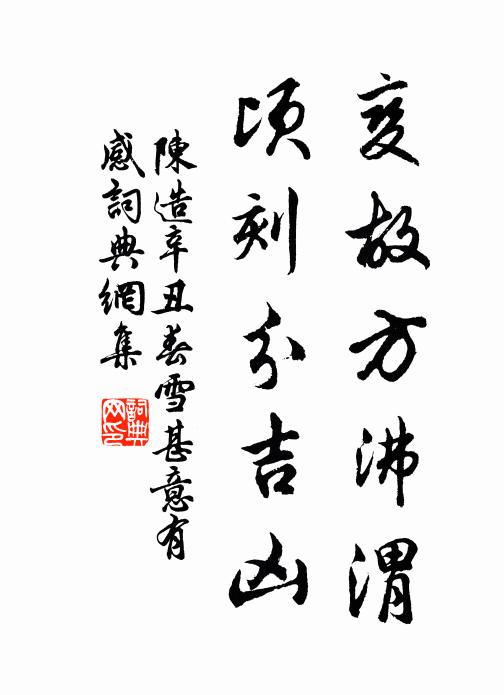 变故方沸渭
頃刻分吉凶
陳造辛丑春雪甚意有
感詞典網集
詞典
网印